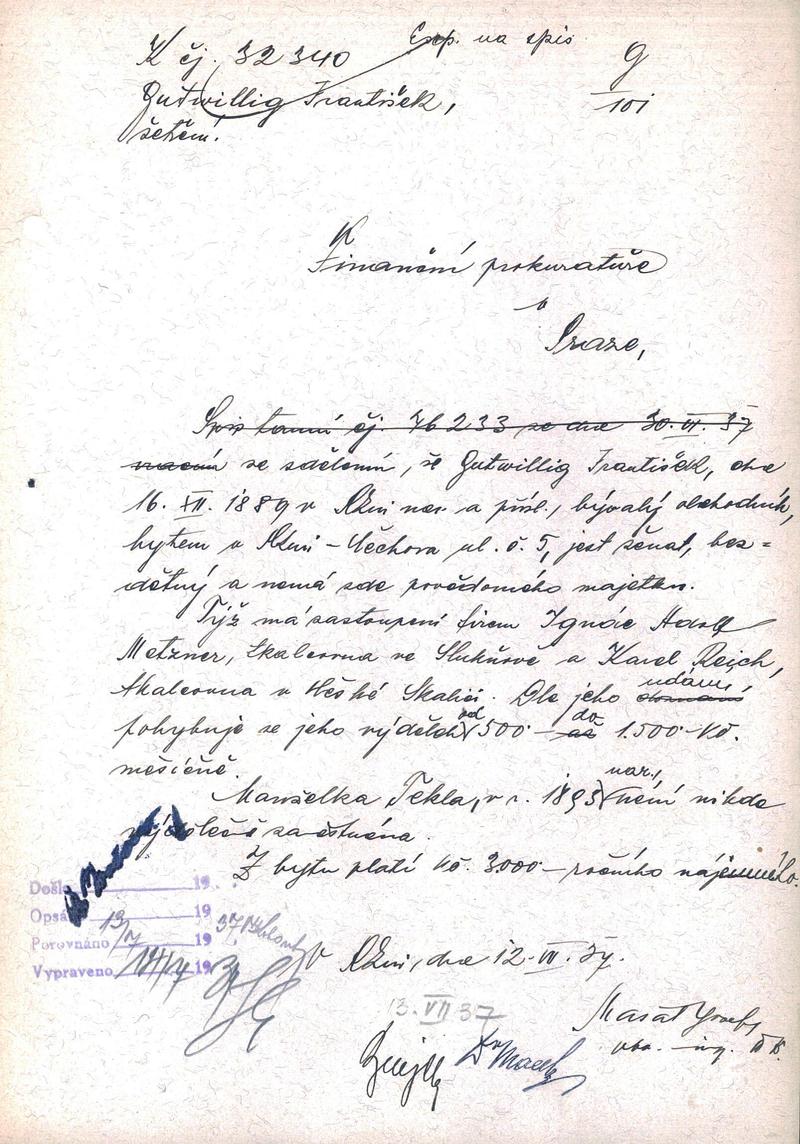 K čj. 32340
Exp. na spis
g
101
Gutwillig František,
šetření.
K
Finanční prokuratuře
v
Praze,
Spis tamní čj. 76233 ze dne 30.VI. 37
vracím se sdělením, že Gutwillig František, dne
16. XII. 1889 v Plzni nar. a přísl., bývalý obchodník,
bytem v Plzni - Čechova ul. č. 5, jest ženat, bez=
dětný a nemá zde povědomého majetku.
Týž má zastoupení firem Ignác Adolf
Metzner, tkalcovna ve Šluknově a Karel Reich,
tkalcovna v České Skalici. Dle jeho udání
pohybuje se jeho výdělek od 500 - do 1.500 Kč.
měsíčně.
Manželka Tekla, v r. 1893 nar., není nikde
výdělečně zaměstnána.
Z bytu platí Kč. 3.000 - ročního nájemného.
Došlo 19
Opsáno 19
Porovnáno 13/7 1937
Vypraveno 14/7 19
V Plzni, dne 12. VII. 37.
13. VII 37
Dr Macek